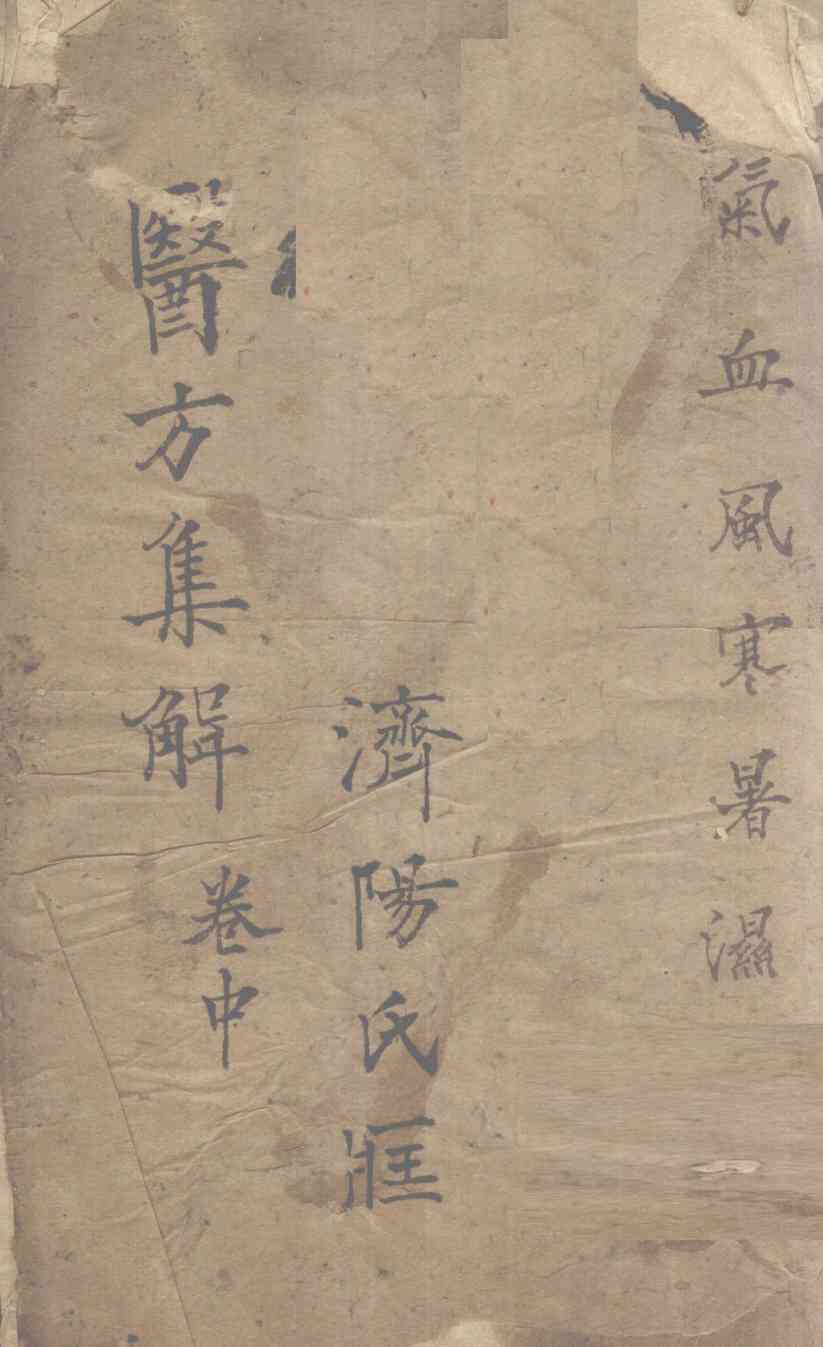 氣血風寒暑濕
濟陽氏
醫方集解 卷中